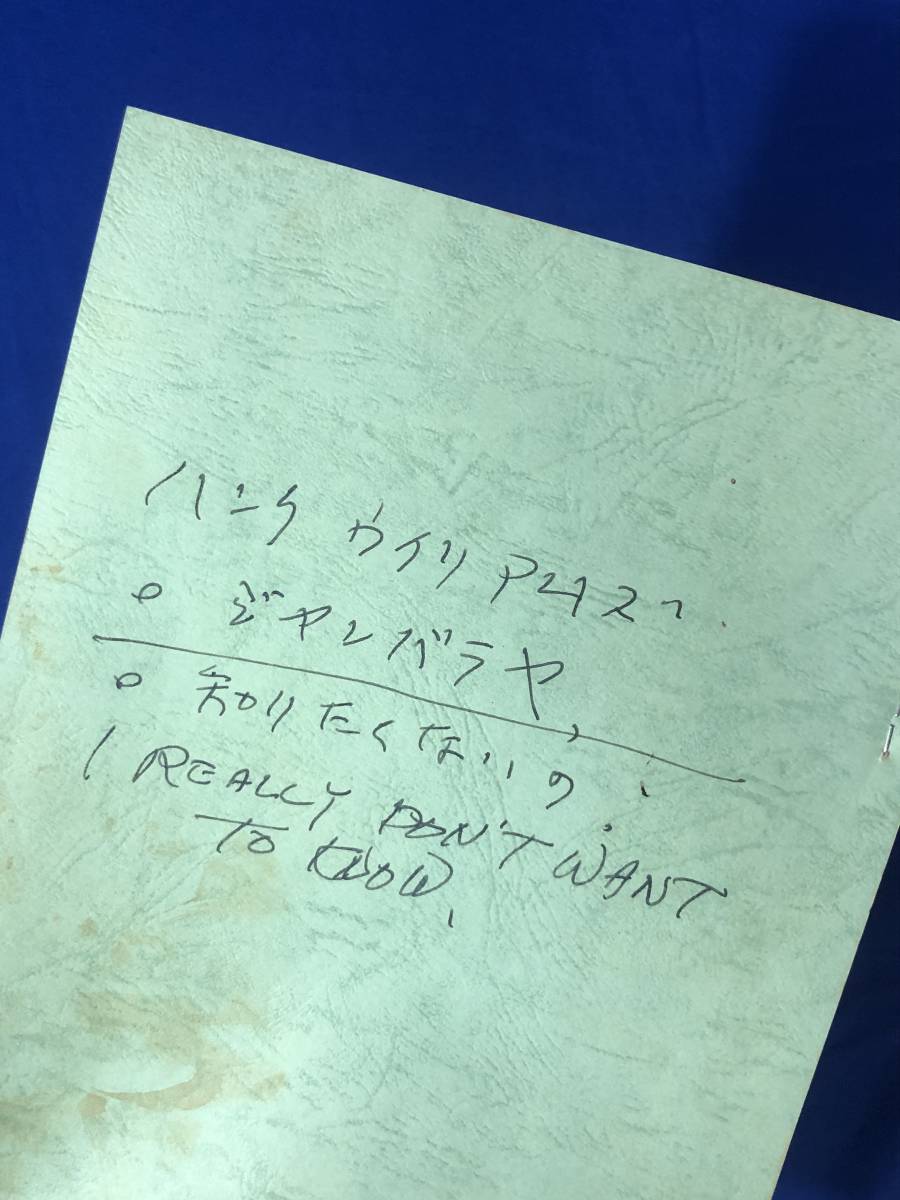 ハンク ウイリアムスの
。ジャンバラヤ、
。知りたくないの
I REALLY DON'T WANT
TO KNOW,